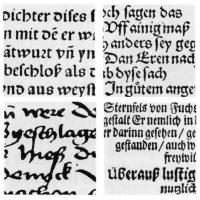 dichter dises
n mit dē er w
ātwurt vñ yn
beschloß als d
ynd aus weyß
ch sagen das
Vff ainig maß
anders sey geg
Dan Eren nach
b dyse sach
In gůtem anger
ñ were d
Byeschlage
hieß
Sternfels von Fuchs
gestalt Er nemlich in
er darinn gesehen / ge
gestanden / auch w
freywil
überauß lustig
nutzlich